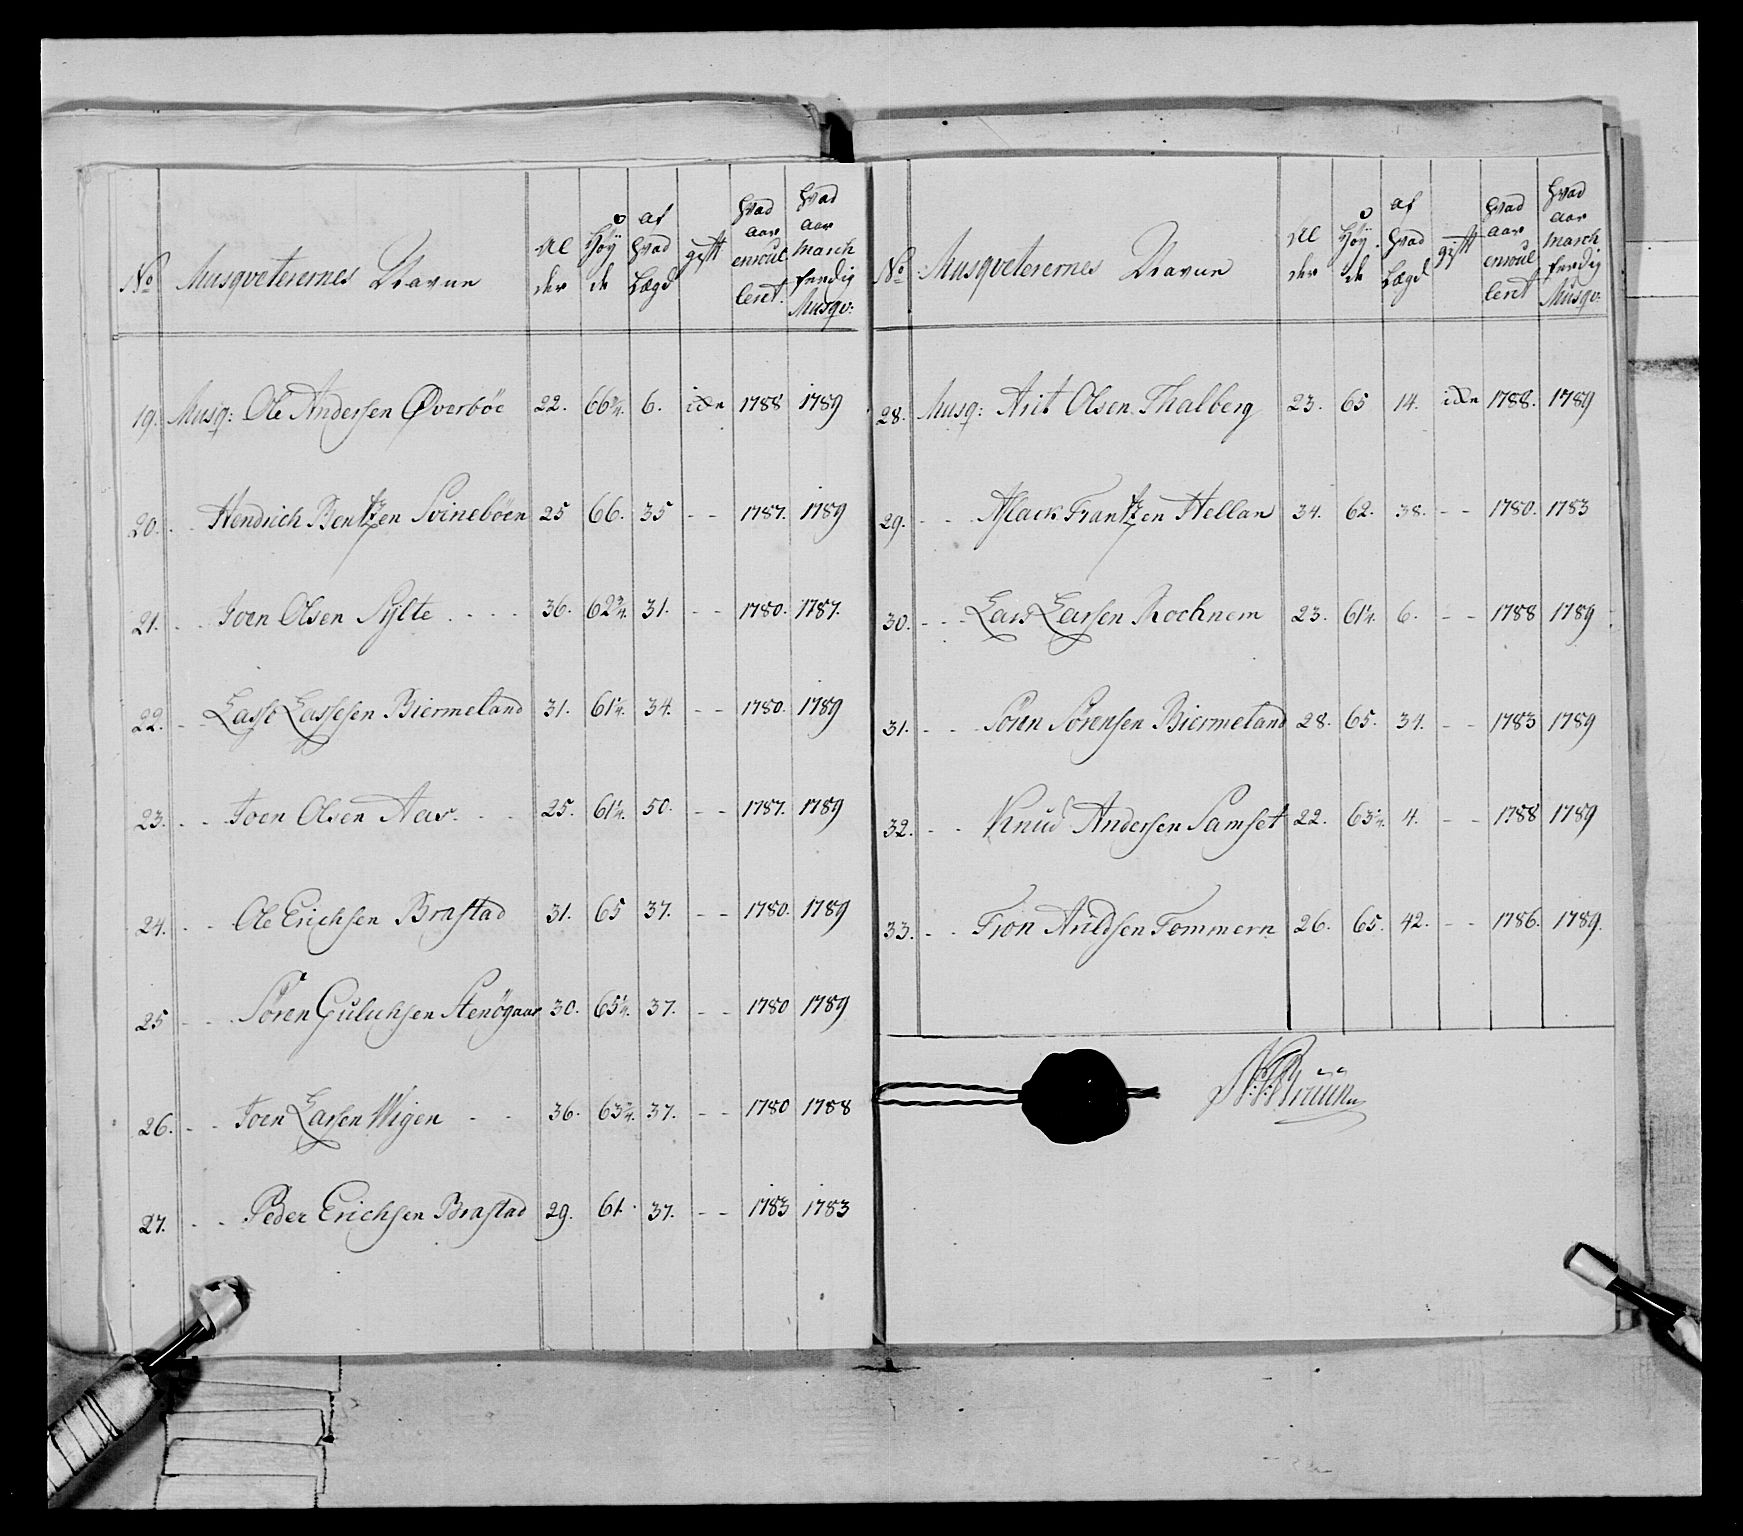 No Musqveterernes Navne Alder Høyde af hvad Lægd gift hvad aar enroulleret hvad aar marchferdig Musqv:
19. Musq: Ole Andersen Øverbøe 22. 66 3/4. 6. icke 1788 1789
20. - - Hendrich Bentzen Svinebøen 25 66. 35 - - 1787. 1789
21. - - Joen Olsen Sylte 36. 62 3/4. 31. - - 1780. 1787.
22. - - Lasse Lassesen Biermeland 31. 61 1/4. 34. - - 1780. 1789
23. - - Joen Olsen Aas. 25. 61 1/4. 50. - - 1787. 1789
24. - - Ole Erichsen Brastad 31. 65 37. - - 1780. 1789
25 - - Søren Gulichsen Stenøgaar 30. 65 1/4. 37. - - 1780 1789
26. - - Joen Larsen Wigen 36. 63 3/4. 37. - - 1780 1788
27. - - Peder Erichsen Brastad 29. 61. 37. - - 1783 1783
No Musqveterernes Navne Alder Høyde af hvad Lægd gift hvad aar enroulleret hvad aar marchferdig Musqv:
28. Musq: Arit Olsen Thalberg 23. 65 14. icke 1788. 1789
29. - - Aslack Frantzen Hellan 34. 62. 38. - - 1780. 1783
30. - - Lars Larsen Kochnem 23. 61 1/4. 6. - - 1788 1789
31. - - Søren Sørensen Biermeland 28. 65. 34. - - 1783 1789
32. - - Knud Andersen Samset 22. 63 1/4. 4. - - 1788 1789
33. - - Tron Arildsen Tommern 26. 65. 42. - - 1786. 1789.
Bruun